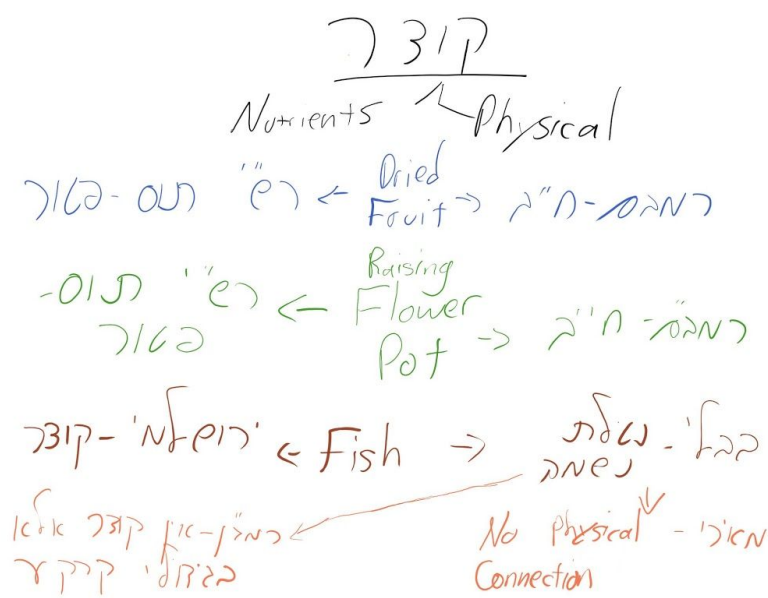 קוצר
Nutrients Physical
Dried
רש"י תוס-פטור ← Fruit → רמבם-חייב
Raising
רש"י תוס- ← Flower
פטור
Pot → רמב"ם-חייב
ירושלמי-קוצר ← Fish → בבלי-נטלת
נשמה
רמב"ן-אין קוצר אלא
בגידולי קרקע
מאירי - No Physical
Connection